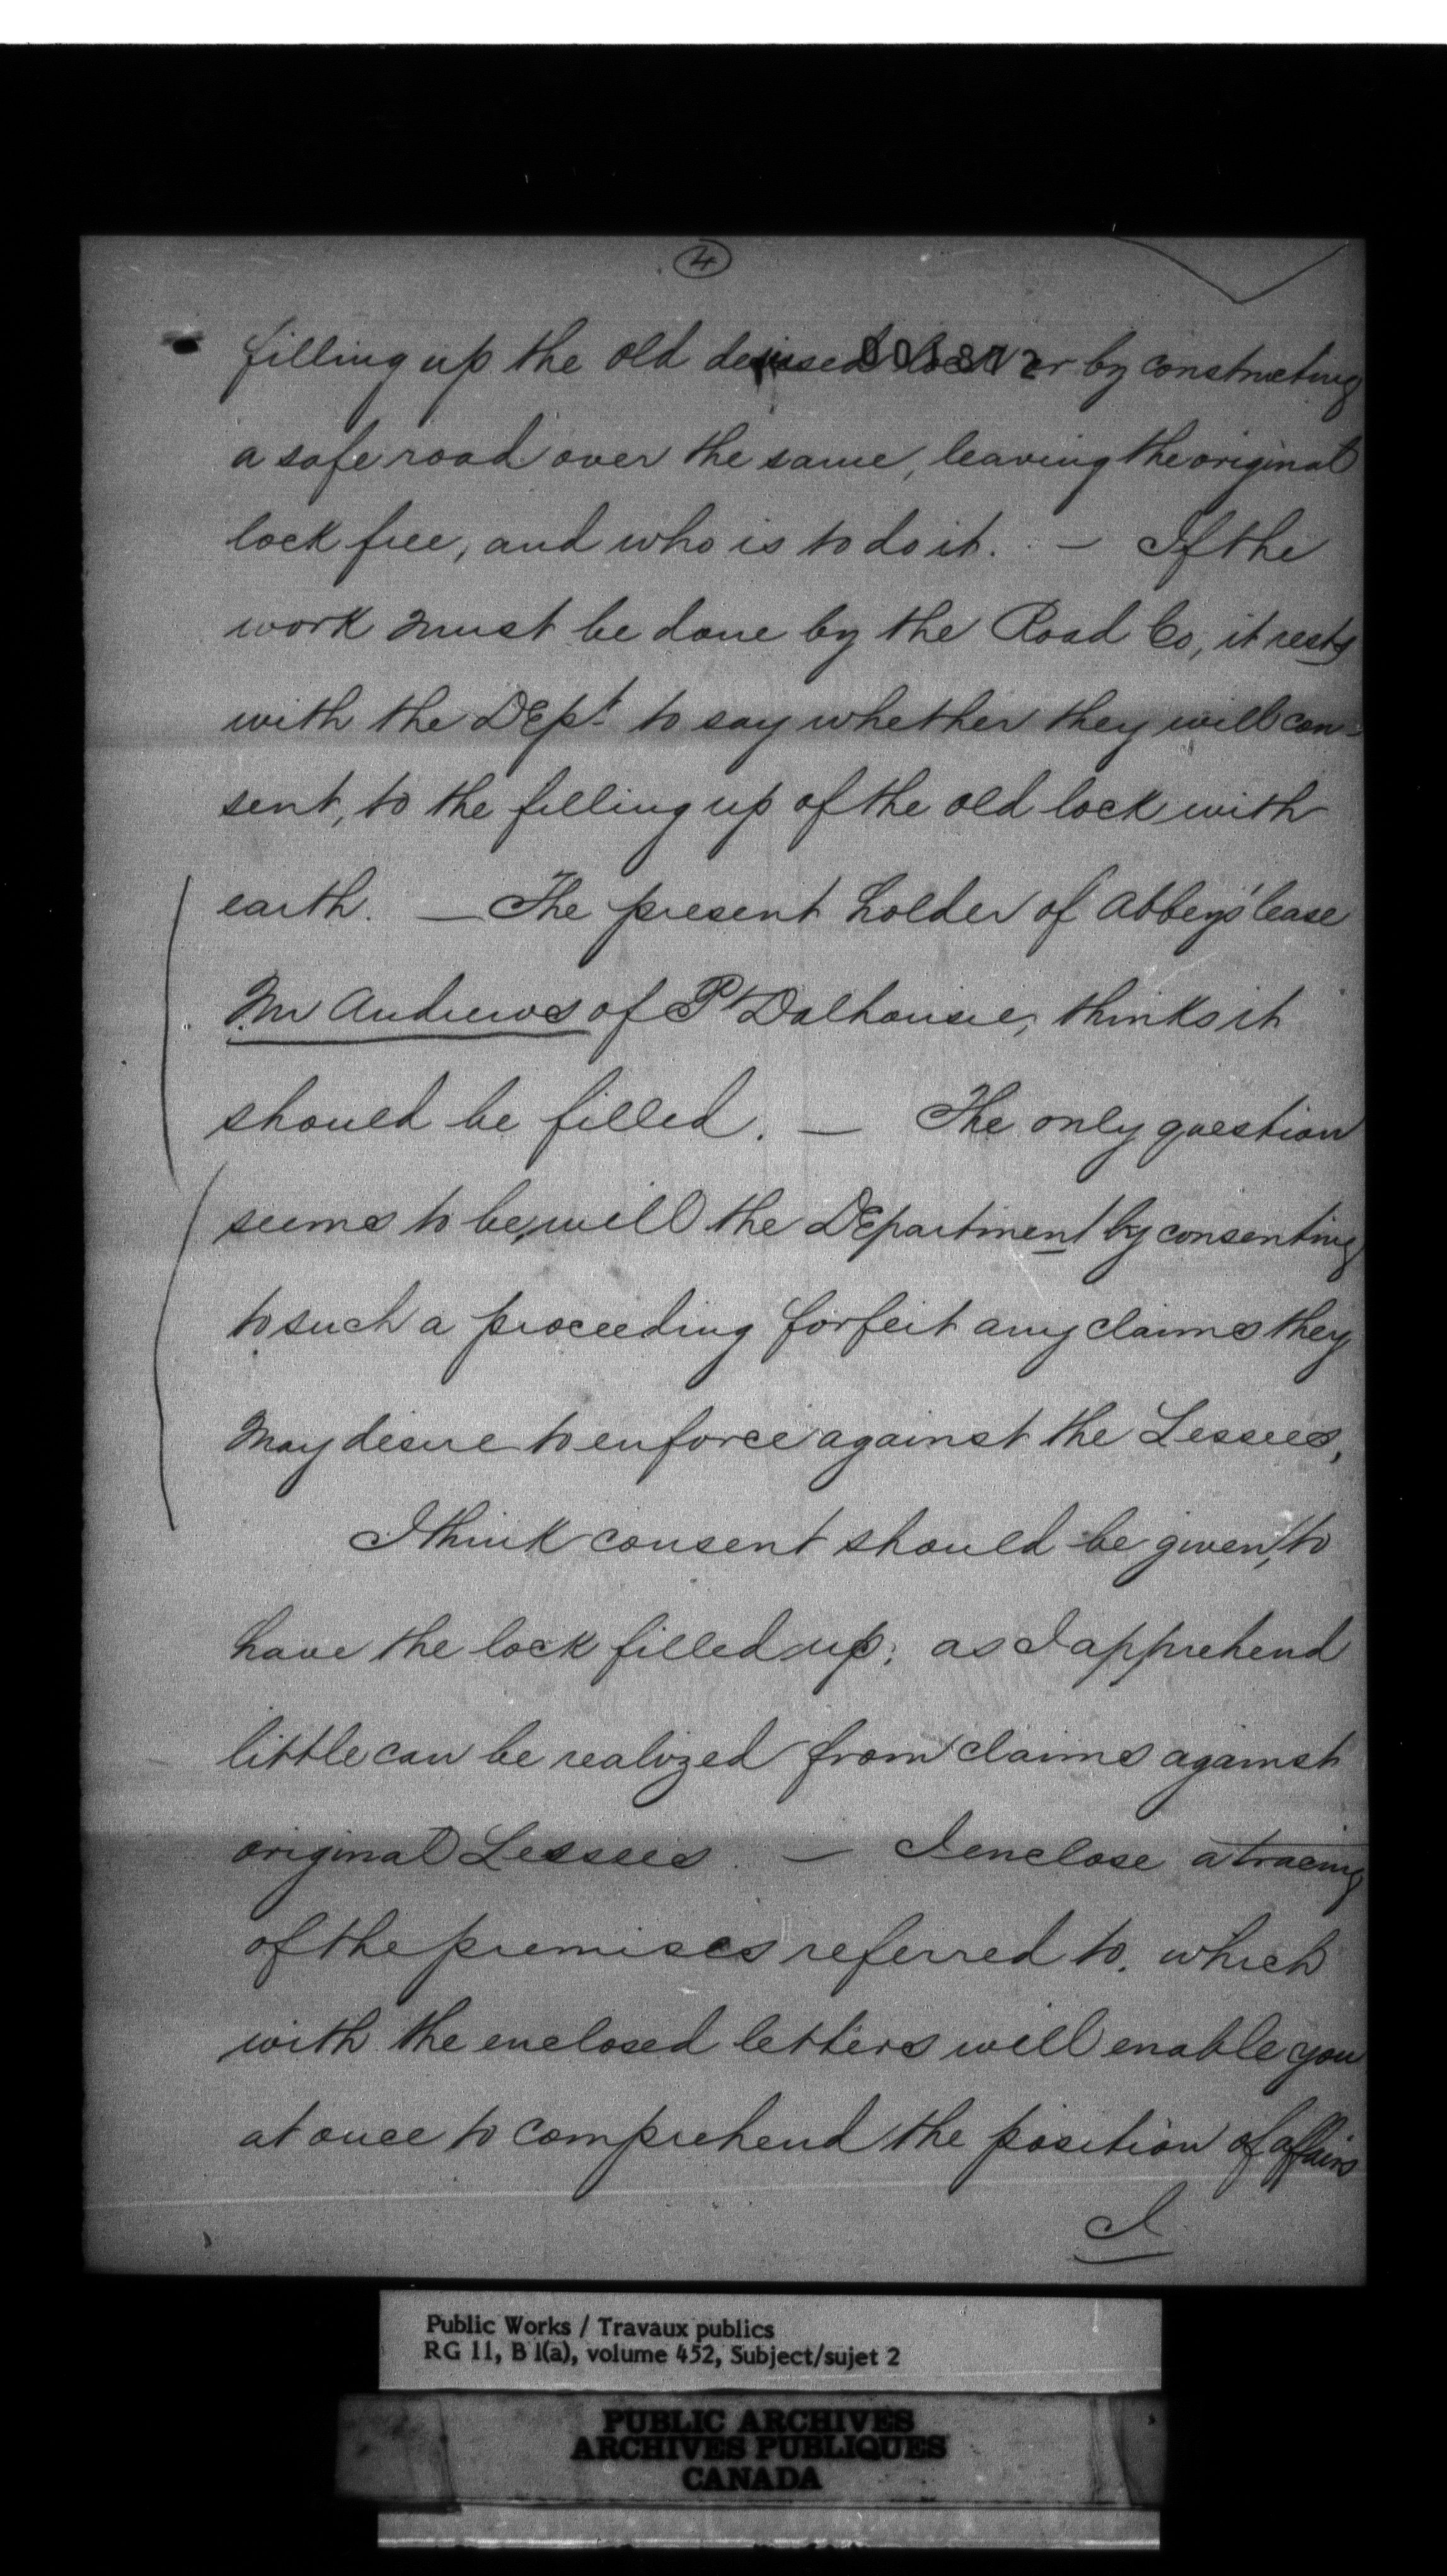 4
filling up the old demised lock or by constructing
a safe road over the same, leaving the original
lock free, and who is to do it. — If the
work must be done by the Road Co, it rests
with the DEpt to say whether they will con=
sent, to the filling up of the old lock with
earth. — The present holder of Abbeys' lease
Mr Andrews of Pt Dalhousie, thinks it
should be filled. — The only question
seems to be, will the DEpartment by consenting
to such a proceeding forfeit any claims they
may desire to enforce against the Lessees,
I think consent should be given, to
have the lock filled up; as I apprehend
little can be realized from claims against
original Lessees. — I enclose a tracing
of the premises referred to. which
with the enclosed letters will enable you
at once to comprehend the position of affairs
I
Public Works / Travaux publics
RG 11, B 1(a), volume 452, Subject/sujet 2
PUBLIC ARCHIVES
ARCHIVES PUBLIQUES
CANADA